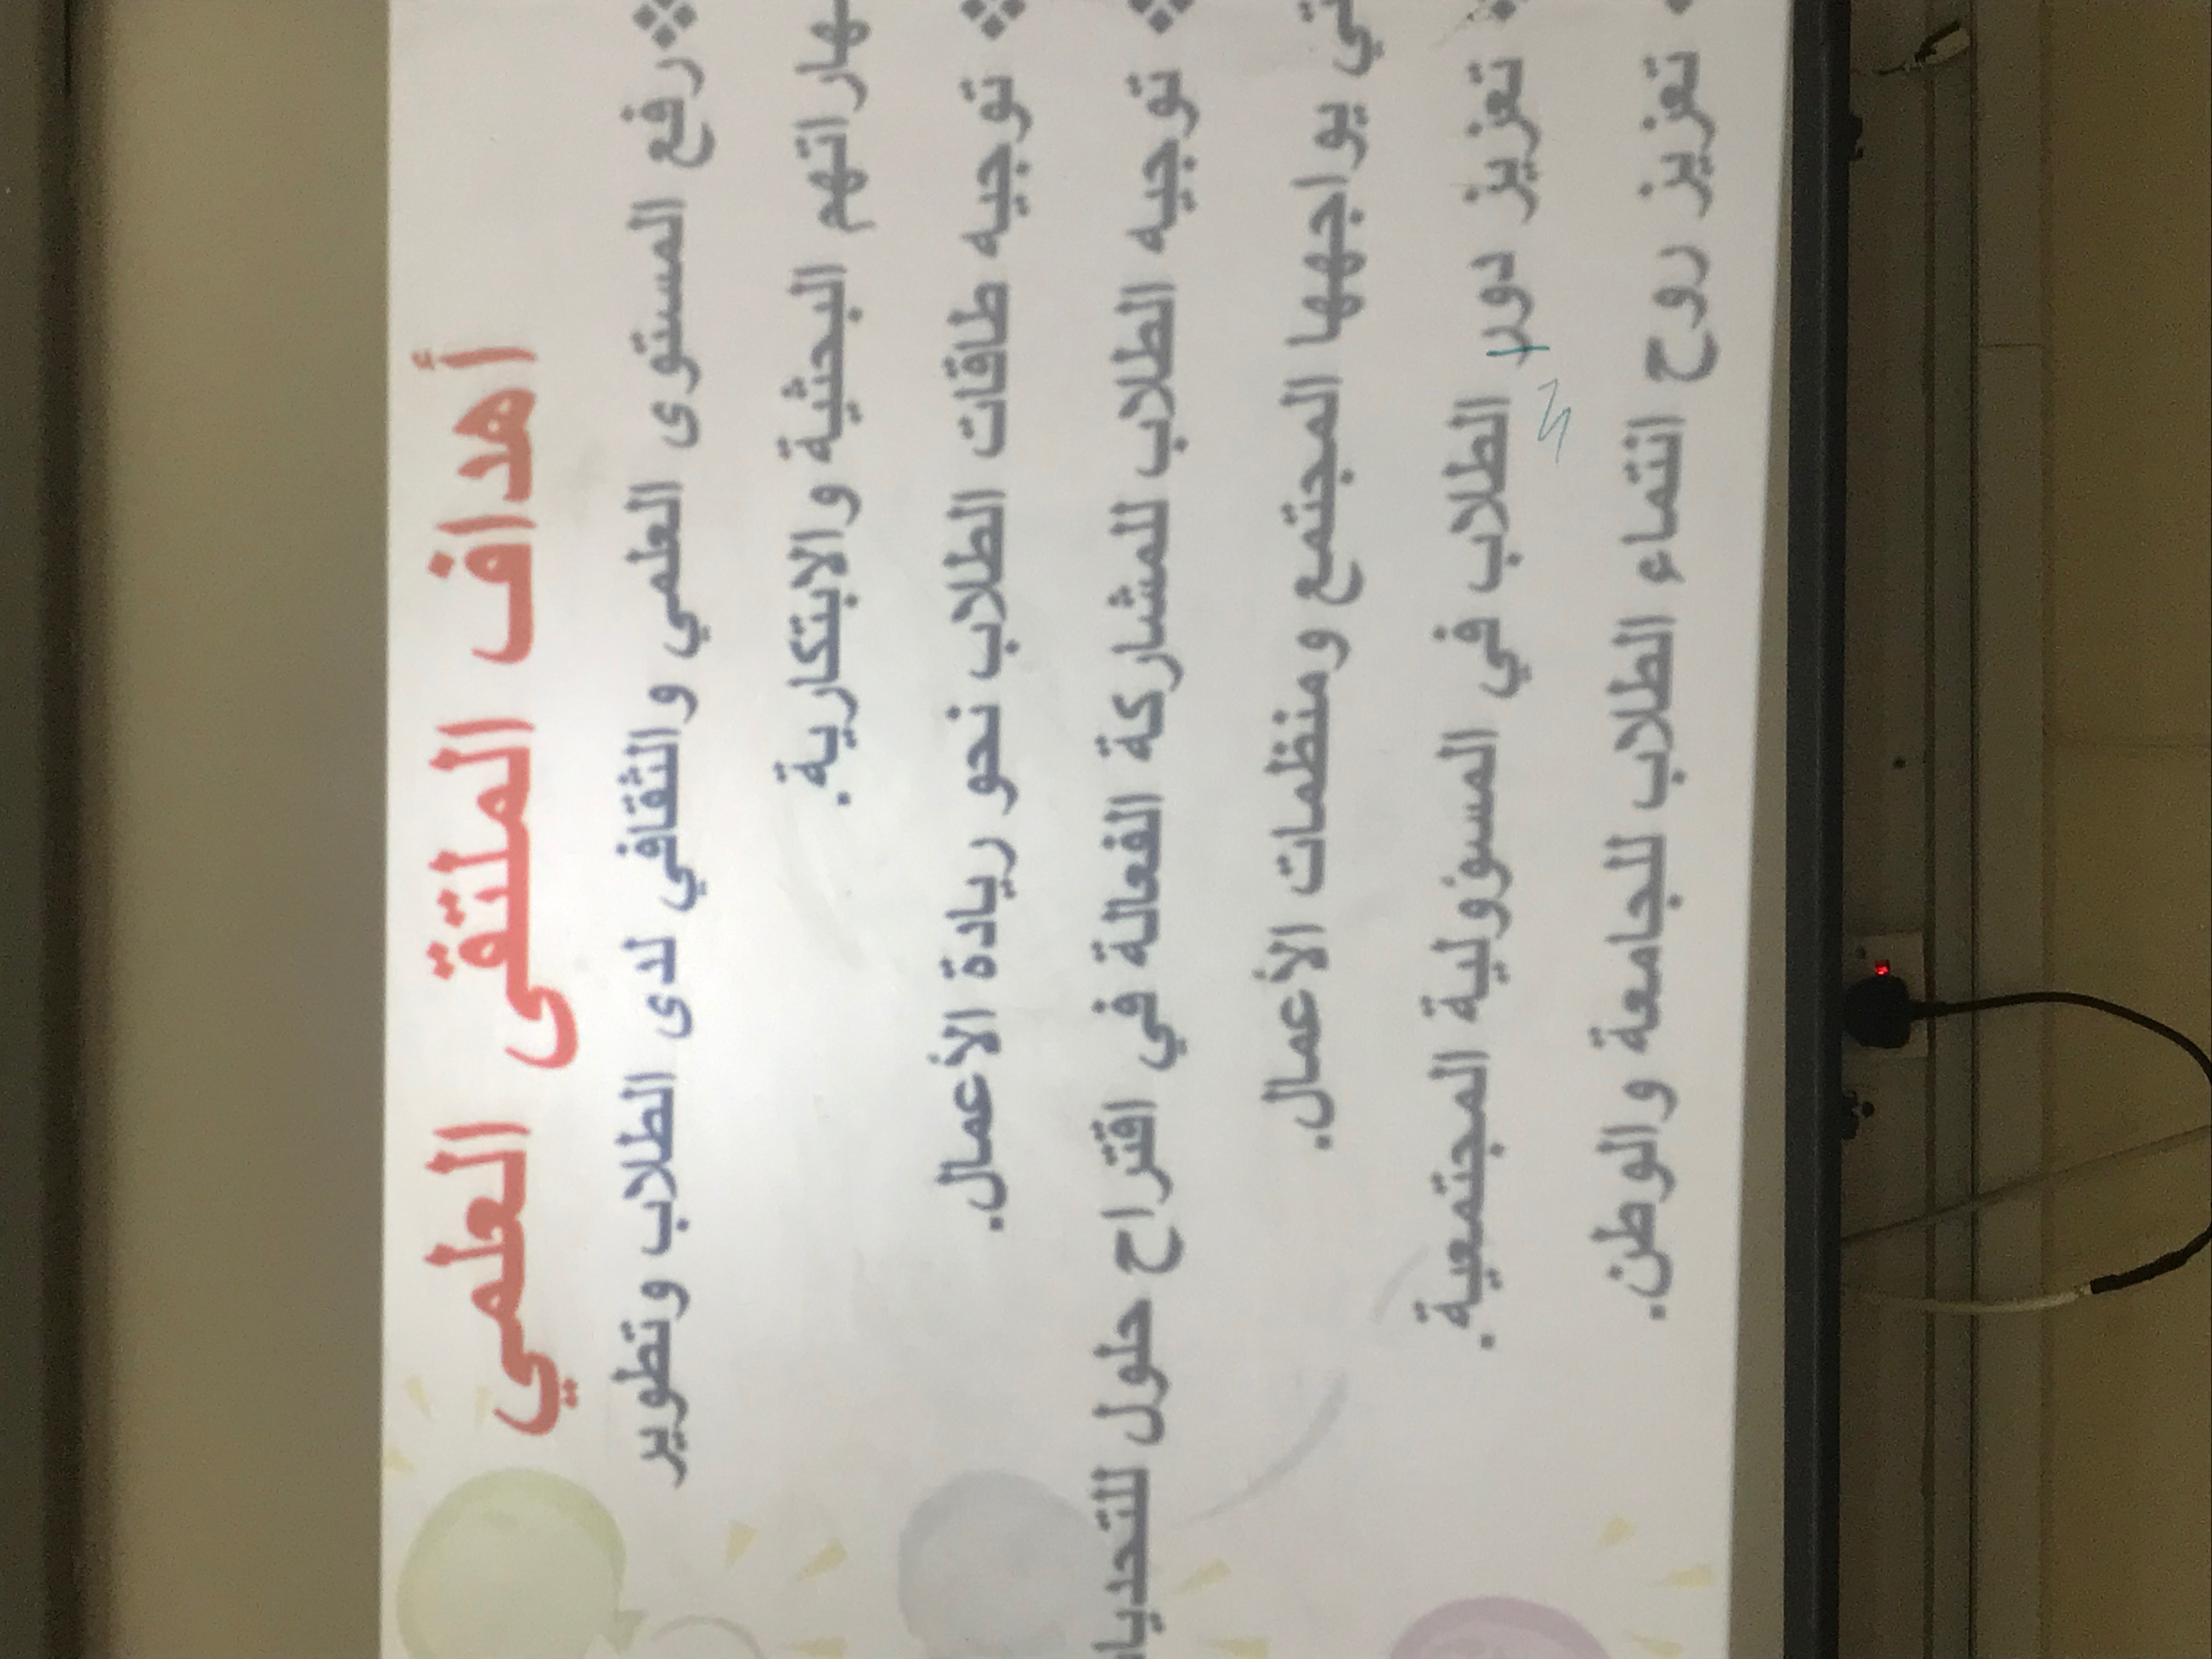 أهداف الملتقى العلمي
❖رفع المستوى العلمي والثقافي لدى الطلاب وتطوير
مهاراتهم البحثية والابتكارية.
❖ توجيه طاقات الطلاب نحو ريادة الأعمال.
❖ توجيه الطلاب للمشاركة الفعالة في اقتراح حلول للتحديات
تي يواجهها المجتمع ومنظمات الأعمال.
❖ تعزيز دور الطلاب في المسؤولية المجتمعية.
❖ تعزيز روح انتماء الطلاب للجامعة والوطن.